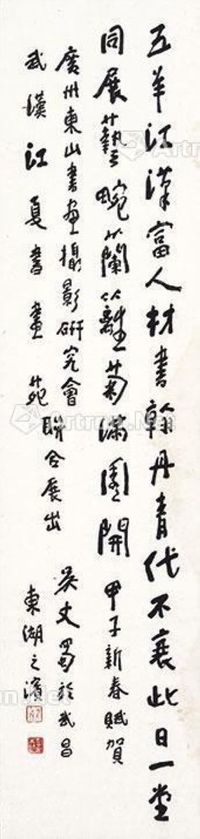 五羊江漢富人材書翰丹青代不衰此日一堂
同展藝畹蘭籬菊滿園開 甲子新春賦賀
廣州東山書畫攝影研究會
武漢江夏書畫苑聯合展出
吳丈蜀於武昌
東湖之濱